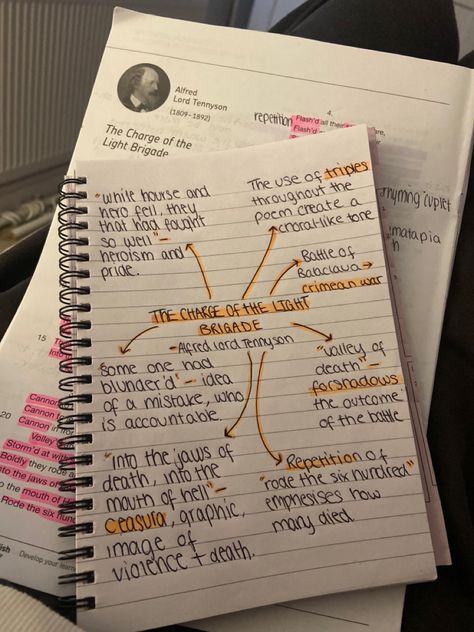 Alfred
Lord Tennyson
(1809–1892)
The Charge of the
Light Brigade
4.
repetition
Flash'd all their
Flash'd
rhyming cuplet
"while hourse and
hero fell, they
that had fought
so well" –
heroism and
pride.
The use of triples
throughout the
poem create a
choral-like tone
Battle of
Balclava →
crimean war
THE CHARGE OF THE LIGHT
BRIGADE
- Alfred lord Tennyson
"some one had
blunder'd" – idea
of a mistake, who
is accountable.
"valley of
death" –
forshadows
the outcome
of the battle
"Into the jaws of
death, into the
mouth of hell" –
Ceasula, graphic,
image of
violence + death.
Repetition of
"rode the six hundred"
emphesises how
many died
15
Cannon
Cannon
20
Cannon in
Volley
Storm'd at with
Boldly they rode a
Into the jaws of
Into the mouth of H
Rode the six hund
Develop your